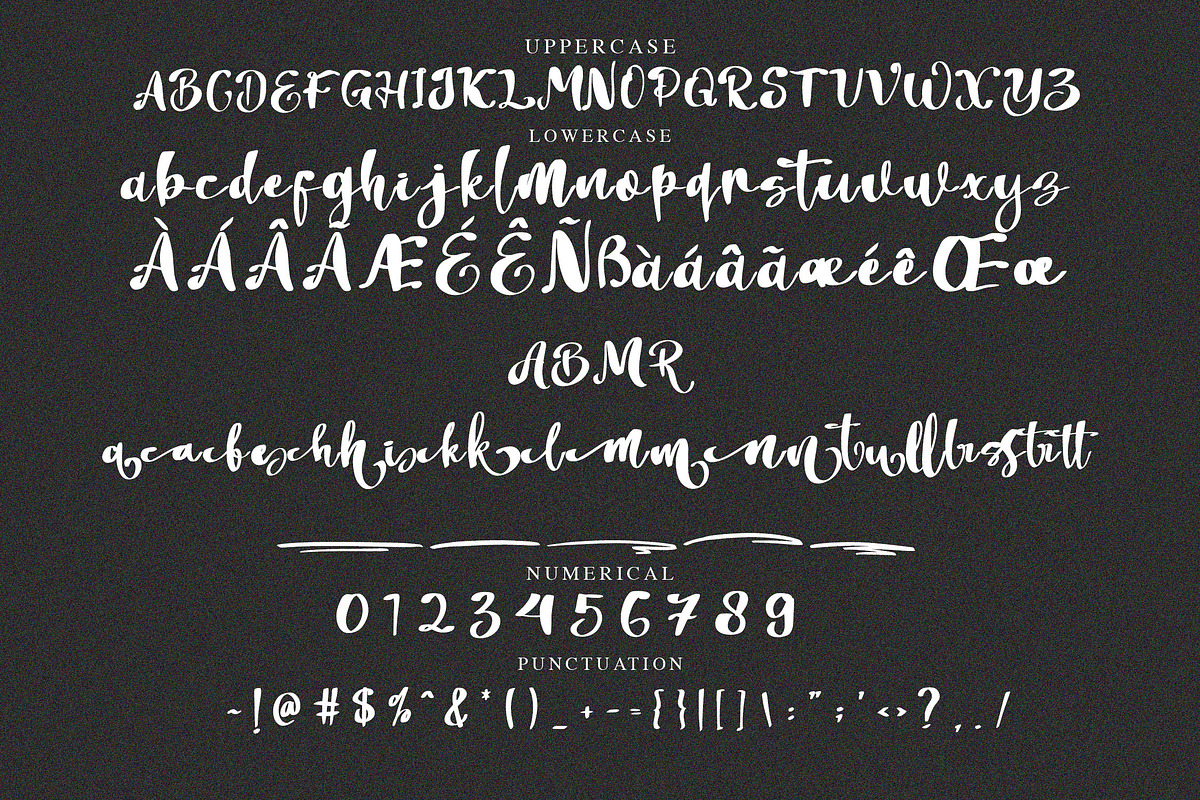 UPPERCASE
ABCDEFGHIJKLMNOPQRSTUVWXYZ
LOWERCASE
abcdefghijklmnopqrstuvwxyz
ÀÁÂÃÆÉÊÑßàáâãæéêŒœ
ABMR
NUMERICAL
0123456789
PUNCTUATION
~!@#$%^&*()_+-={}|[]\:";'<>?,./